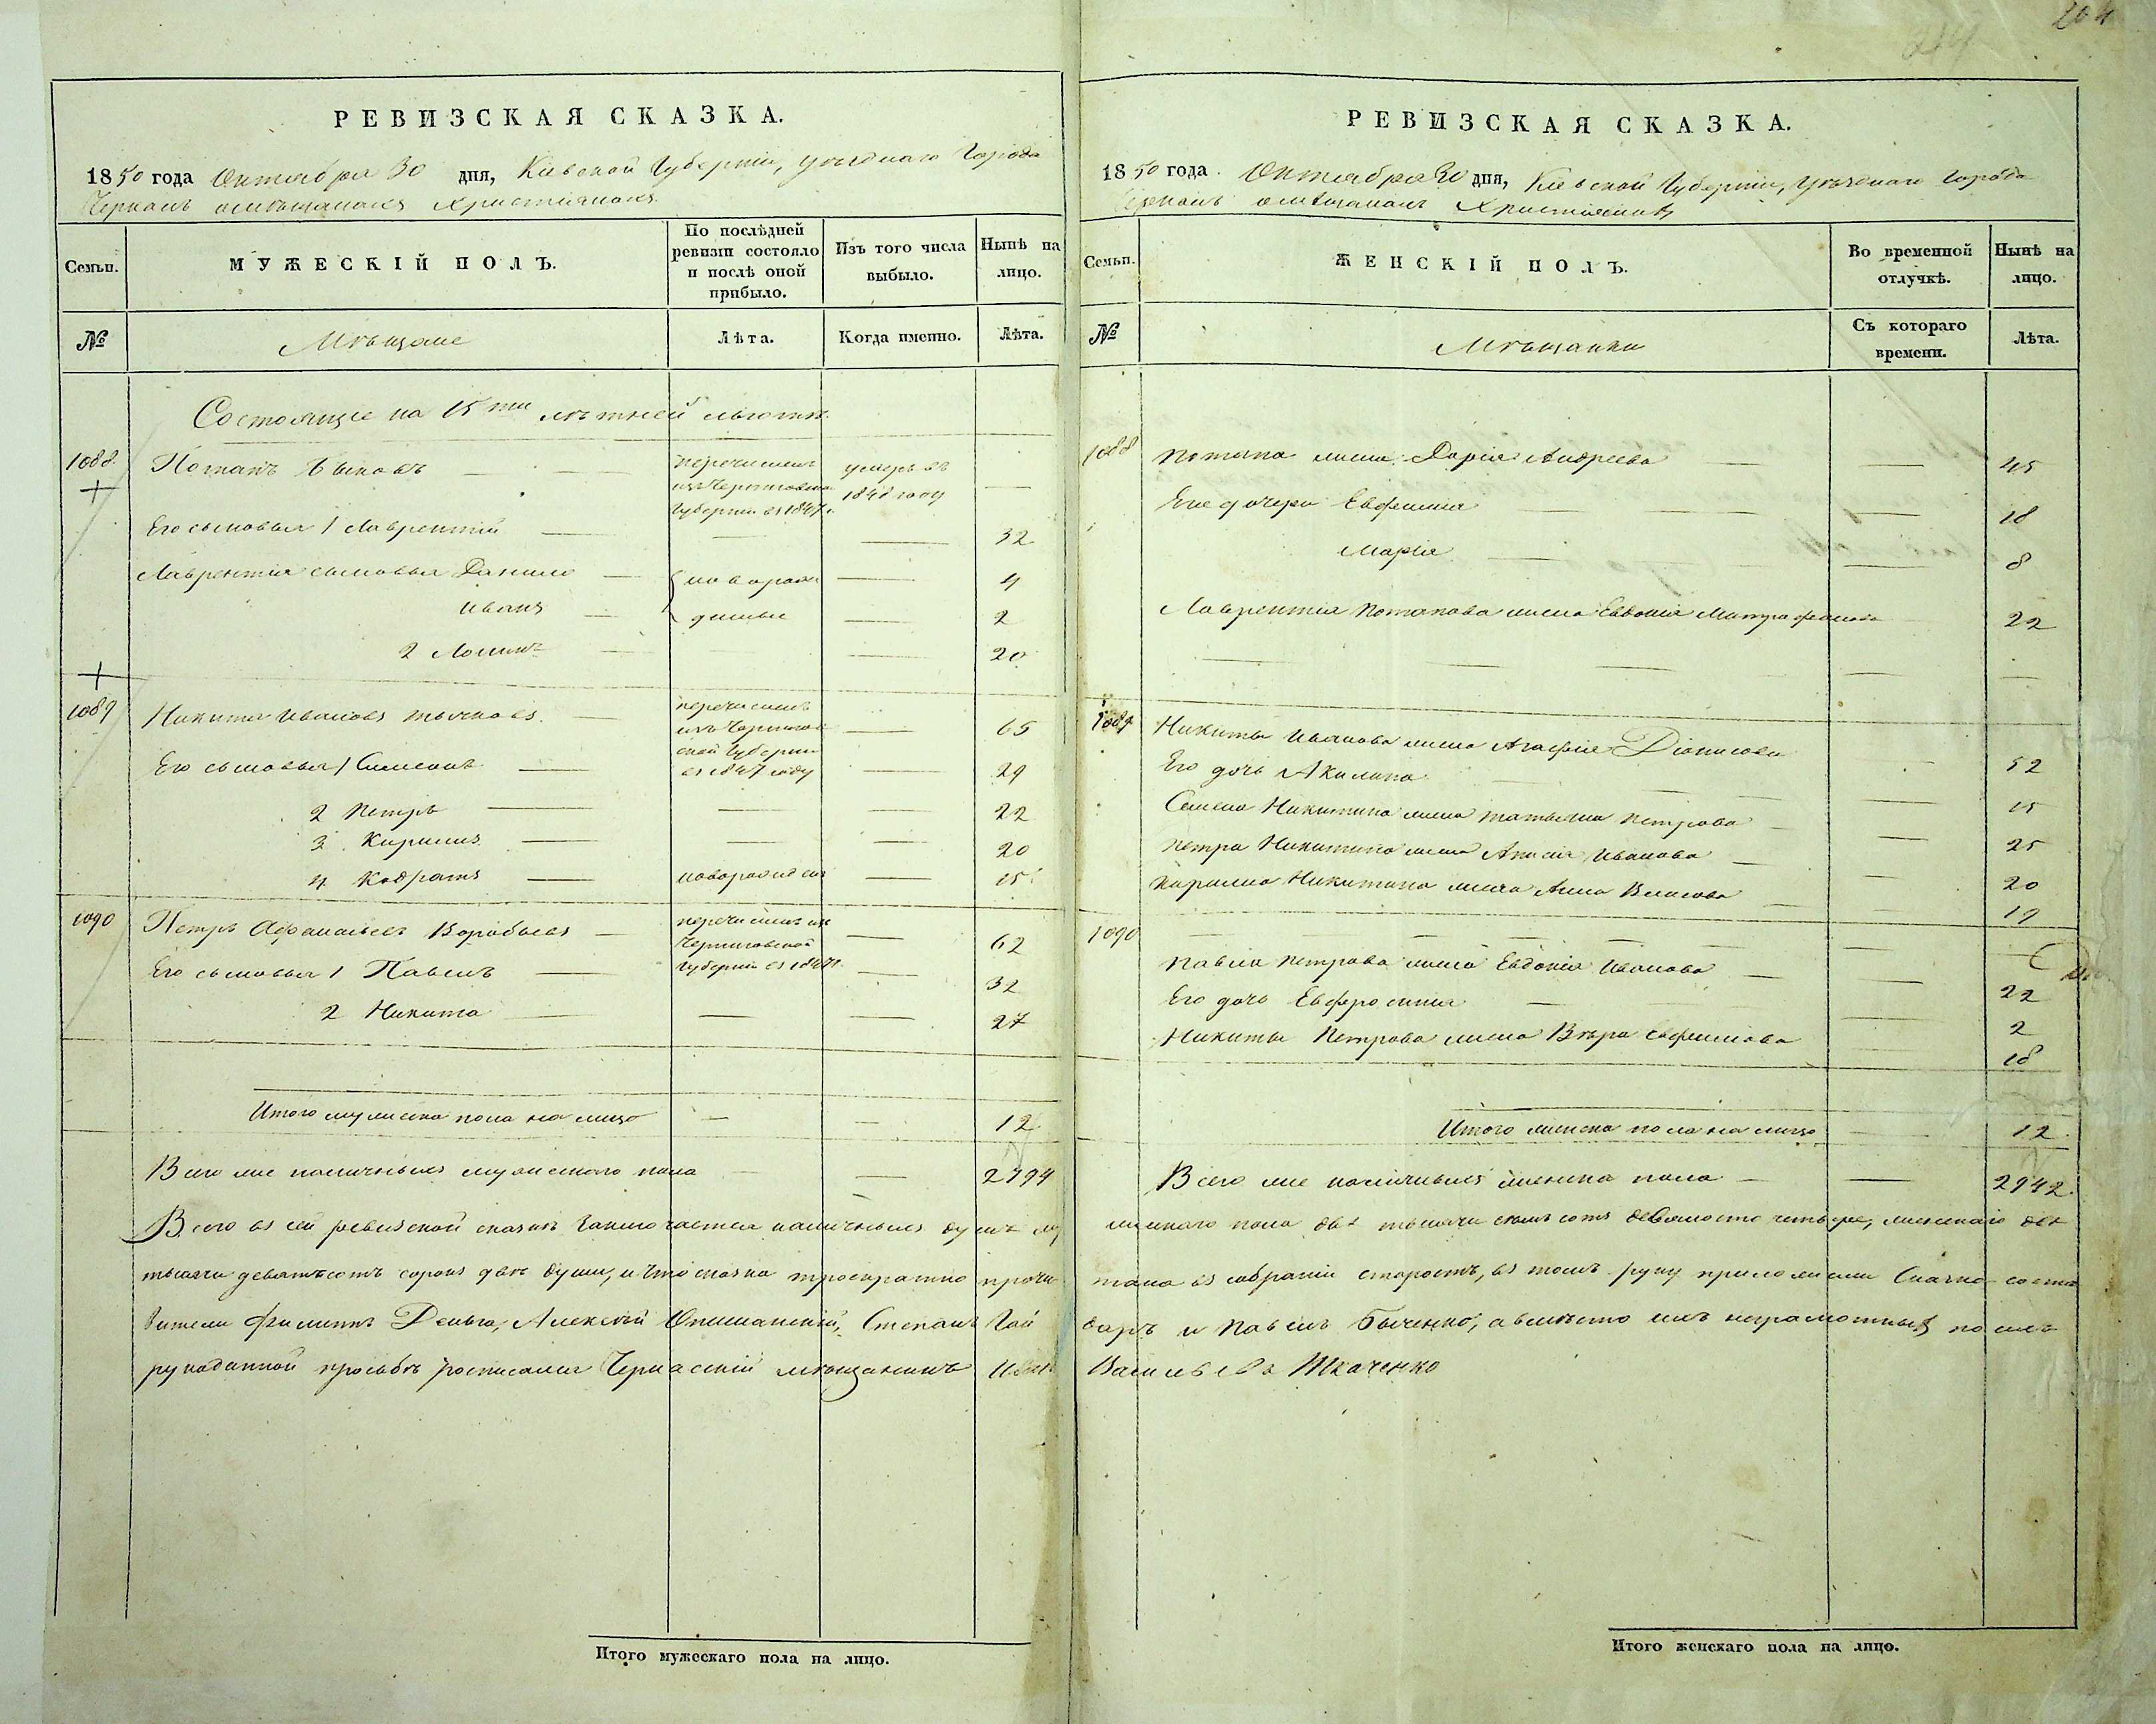 204
РЕВИЗСКАЯ СКАЗКА.
1850 года Октября 30 дня, Киевской Губерніи, уѣзднаго Города
Черкасъ омѣщанахъ Христіянахъ
Семьи.
МУЖЕСКІЙ ПОЛЪ.
По послѣдней ревизіи состояло и послѣ оной прибыло.
Изъ того числа выбыло.
Нынѣ на лицо.
№
Мѣщане
Лѣта.
Когда именно.
Лѣта.
Состоящіе на 15ти лѣтней льготѣ
1088. Потапъ Быковъ — перечисленъ изъ Черниговской Губерніи въ 1847 г. умеръ въ 1848 году —
Его сыновья 1 Лаврентій — — — 32
Лаврентія сыновья Данило — новорожденные — 4
Иванъ — — 2
2 Логинъ — — 20
1089 Никита Ивановъ Тычковъ — перечисленъ изъ Черниговской Губерніи въ 1847 году — 65
Его сыновья 1 Семенъ — — 29
2 Петръ — — — 22
3 Кирилъ — — — 20
4 Кодратъ — новорожден — 15
1090 Петръ Афанасьевъ Воробьевъ — перечисленъ изъ Черниговской Губерніи въ 1847 г — 62
Его сыновья 1 Павелъ — — 32
2 Никита — — — 27
Итого мужеска пола на лицо — — 12
Всего же наличныхъ мужескаго пола — — 2794
Всего въ сей ревизской сказкѣ заключается наличныхъ душъ му
тысячи девятьсотъ сорокъ двѣ души, и что сказка троекратно прочи
вители Филиппъ Деньга, Алексѣй Степанъ Гай
рукоданной прозьбѣ росписался Черкаскій мѣщанинъ Иван
РЕВИЗСКАЯ СКАЗКА.
1850 года. Октября 30 дня, Киевской Губерніи, уѣзднаго Города
Черкасъ омѣщанахъ Христіянахъ
Семьи.
ЖЕНСКІЙ ПОЛЪ.
Во временной отлучкѣ.
Нынѣ на лицо.
№
Мѣщанки
Съ котораго времени.
Лѣта.
1088 Потапа жена Дарія Андреева — — 45
Его дочери Евфимія — — 18
Марія — — 8
Лаврентія Потапова жена Евдокія Митрофанова 22
1089 Никиты Иванова жена Агафія Діонисова — 52
Его дочь Акилина — — 15
Семена Никитина жена Татьяна Петрова — — 25
Петра Никитина жена Анисія Иванова — — 20
Кирила Никитина жена Анна Власова — — 19
1090 — — — —
Павла Петрова жена Евдокія Иванова — — 22
Его дочь Евфросинія — — 2
Никиты Петрова жена Вѣра Евфимова — 18
Итого женска пола на лицо — 12.
Всего же наличныхъ женска пола — — 2942.
жескаго пола двѣ тысячи семьсотъ девяносто четыре, женскаго двѣ
тана въ собраніи старостъ, въ томъ руку приложили Сказко соста
даръ и Павелъ Быченко, авмѣсто ихъ неграмотныхъ по ихъ
Васильевъ Ткаченко
Итого мужескаго пола на лицо.
Итого женскаго пола на лицо.